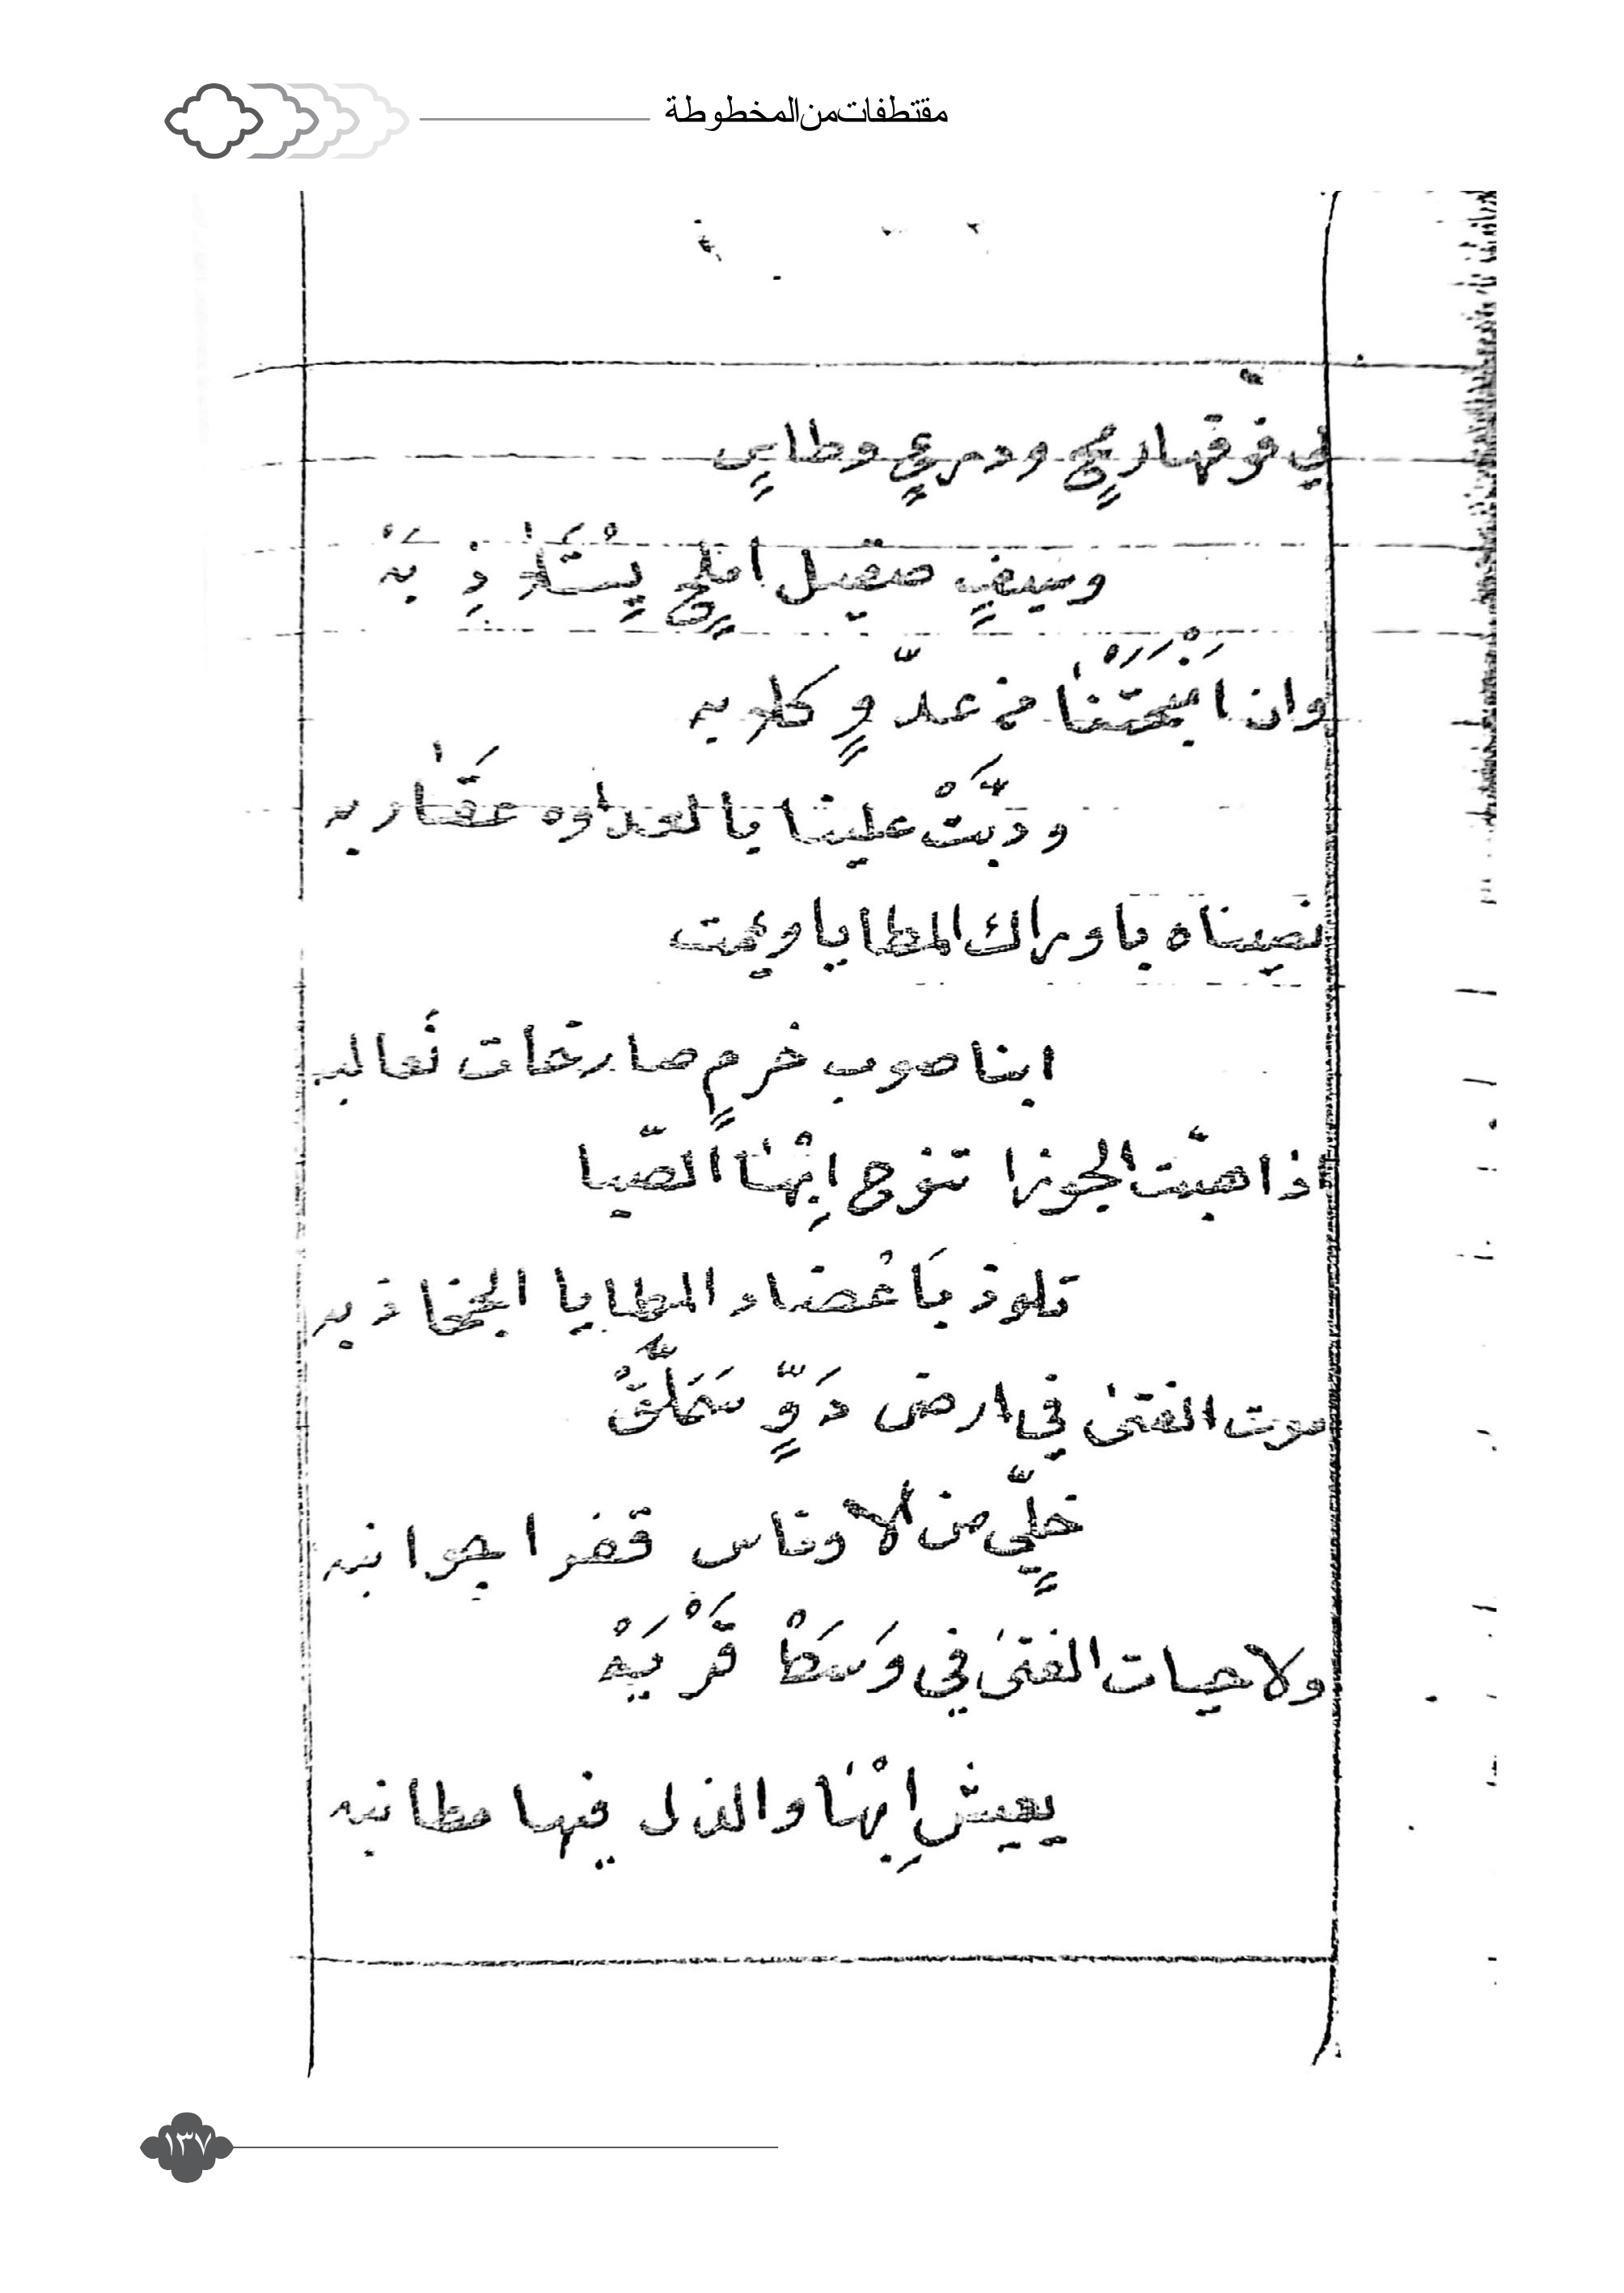 مقتطفات من المخطوطة
في فوقها رمحٍ ودرعٍ وطايبٍ
وسيفٍ صقيل املحٍ يِسْتَلاذِ بَهْ
وان انبحَتْنَا من عدّوٍ كلابه
ودبَّتْ علينا بالعداوه عقَاربه
نصيناه باوراك المطايا ويممت
ابنا صوب خرمٍ صارخات ثَعالبه
اذا هبّت الجوزا تنوح اِبْهَا الصّبا
تلوذ بَاعْضاد المطايا الجخادبه
موت الفتى في ارض دَوٍّ سَمَلَّقْ
خلِّيٍ من الاوناس قفرا جوانبه
ولا حيات الفتى في وَسَطْ قَرْيَهْ
يعيش اِبْهَا والذل فيها مطانبه
١٣٧